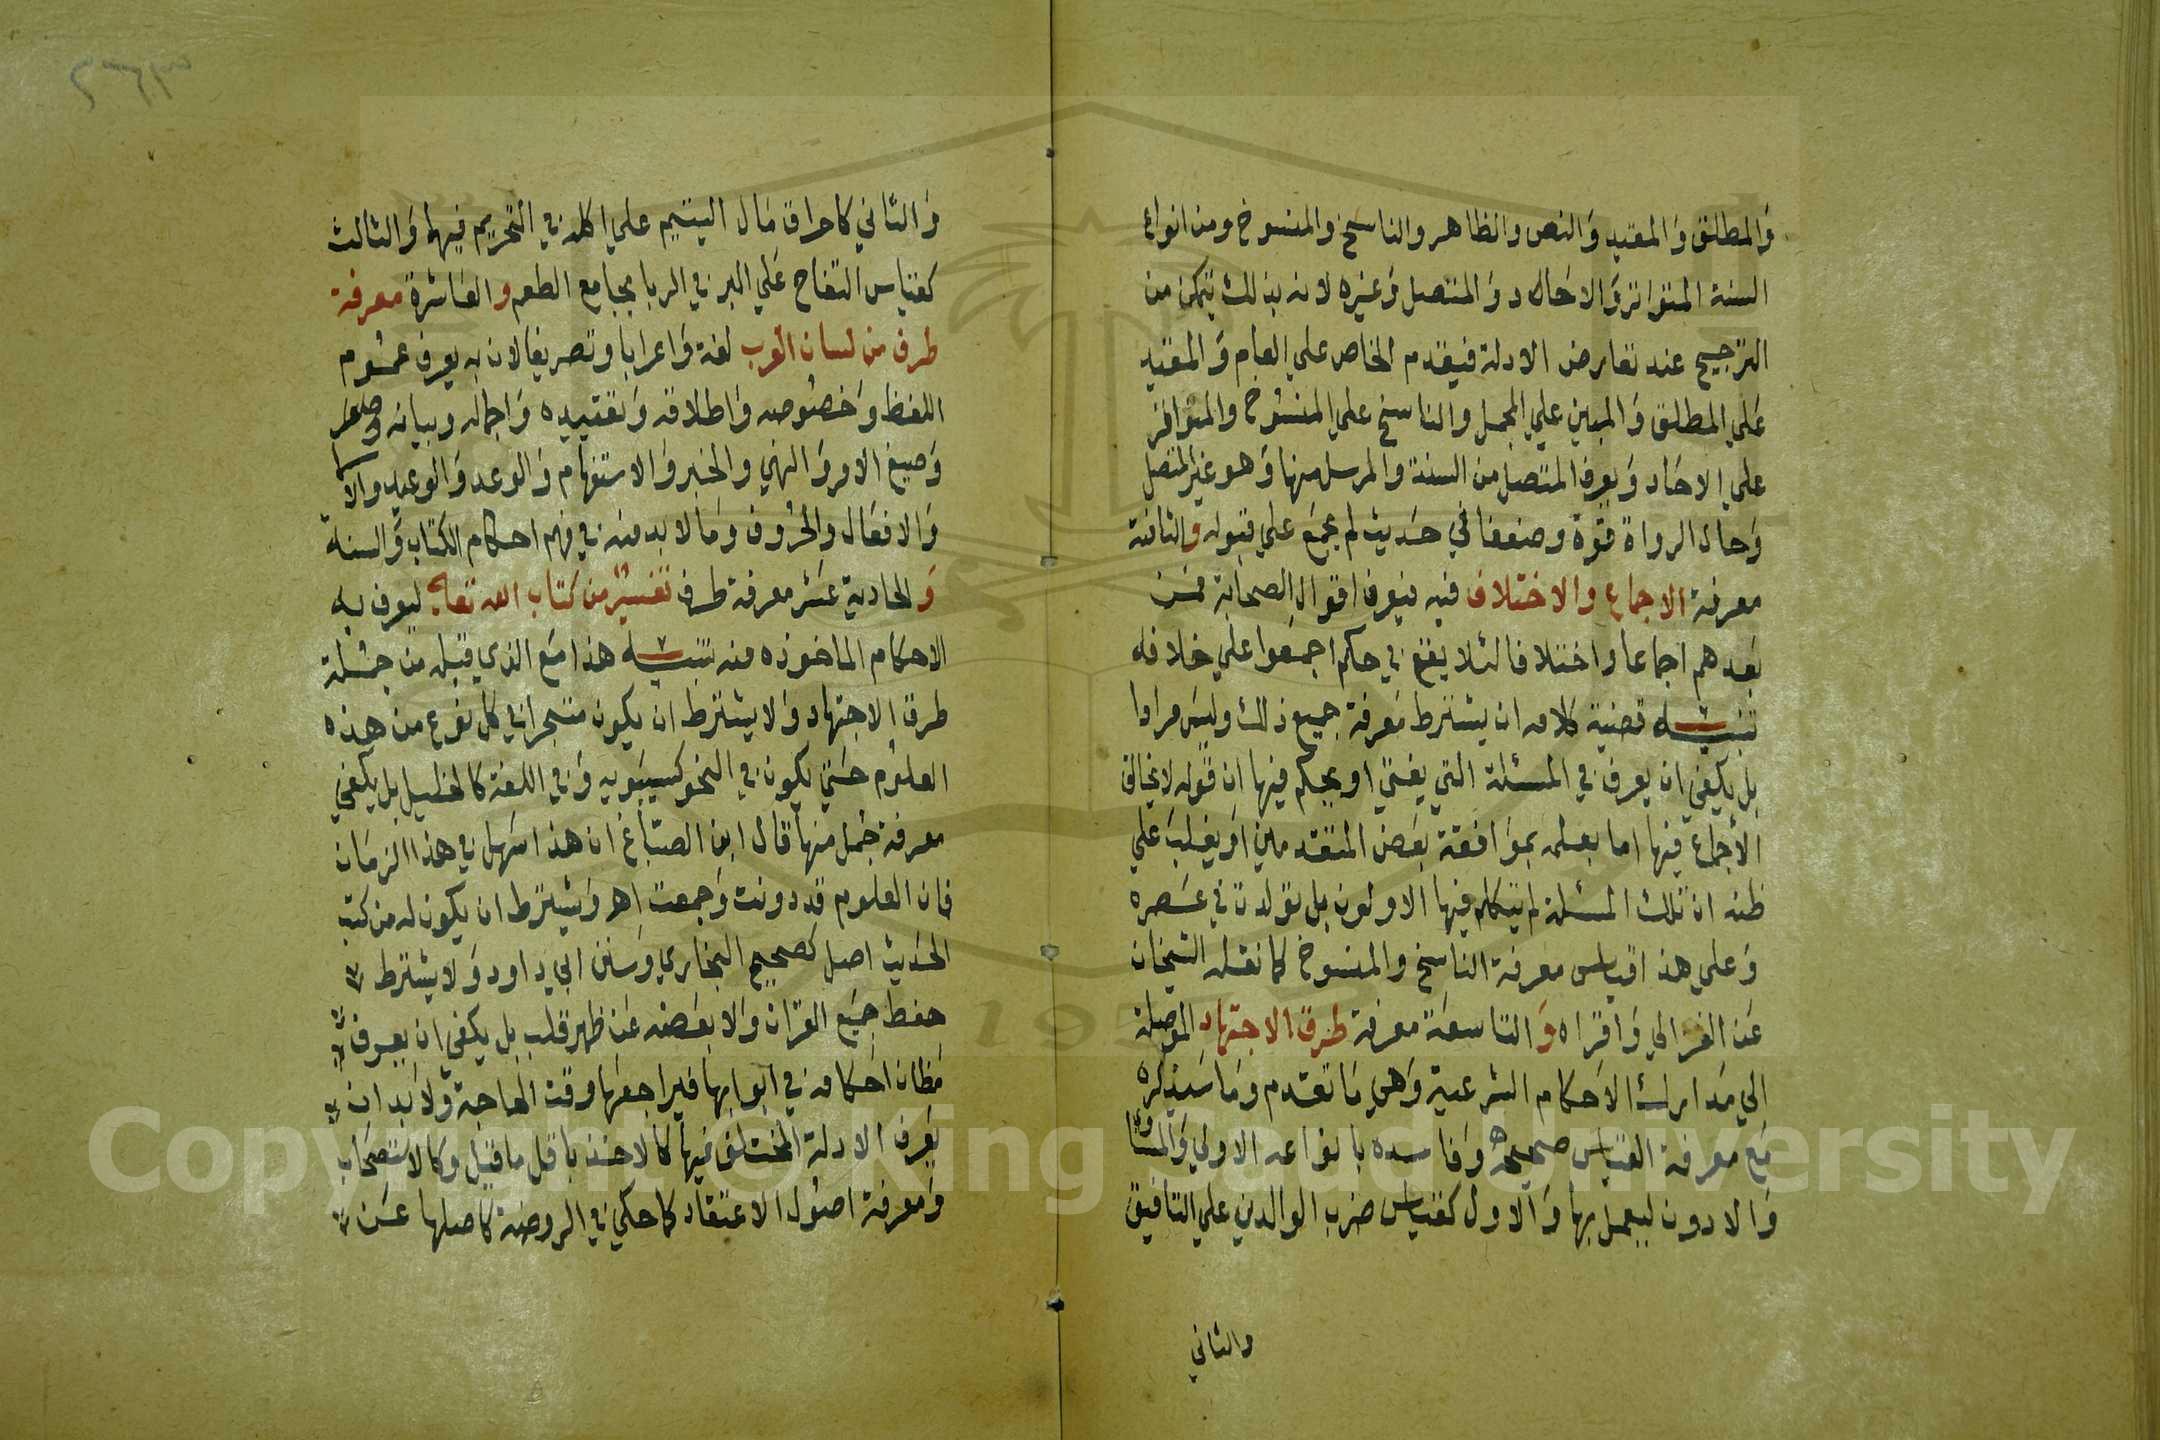 والمطلق والمقيد والنص والظاهر والناسخ والمنسوخ ومن انواع
السنة المتواتر والاحاد والمتصل وغيره لانه بذلك يتمكن من
الترجيح عند تعارض الادلة فيقدم الخاص على العام والمقيد
على المطلق والمبين علي المجمل والناسخ علي المنسوخ والمتواتر
علي الاحاد ويعرف المتصل من السنة والمرسل منها وهو غير المتصل
وحال الرواة قوة وضعفا في حديث لم يجمع علي قبوله والثامنة
معرفة الاجماع والاختلاف فيه فيعرف اقوال الصحابة فمن
بعدهم اجماعا واختلافا لئلا يقع في حكم اجمعوا علي خلافه
تنبيه قضية كلامه ان يشترط معرفة جميع ذلك وليس مرادا
بل يكفي ان يعرف في المسئلة التي يفتي او يحكم فيها ان قوله لا يخالف
الاجماع فيها اما بعلمه بموافقة بعض المتقدمين او يغلب علي
ظنه ان تلك المسئلة لم يتكلم فيها الاولون بل تولدت في عصره
وعلي هذا قياس معرفة الناسخ والمنسوخ كما نقله الشيخان
عن الغزالي واقراه والتاسعة معرفة طرق الاجتهاد الموصلة
الي مدارك الاحكام الشرعية وهي ما تقدم وما سيذكره
مع معرفة القياس صحيحه وفاسده بانواعه الاولي والمساوي
والادون ليعمل بها والاول كقياس ضرب الوالدين علي التافيف
والثاني
والثاني كاحراق مال اليتيم علي اكله في التحريم فيهما والثالث
كقياس التفاح علي البر في الربا بجامع الطعم والعاشرة معرفة
طرف من لسان العرب لغة واعرابا وتصريفا لان به يعرف عموم
اللفظ وخصوصه واطلاقه وتقييده واجماله وبيانه
وصيغ الامر والنهي والخبر والاستفهام والوعد والوعيد والاسما
والافعال والحروف وما لا بد منه في فهم احكام الكتاب والسنة
والحادية عشر معرفة طرف تفسير من كتاب الله تعالى ليعرف به
الاحكام الماخوذه منه تنبيه هذا مع الذي قبله من جملة
طرق الاجتهاد ولا يشترط ان يكون متبحرا في كل نوع من هذه
العلوم حتي يكون في النحو كسيبويه وفي اللغة كالخليل بل يكفي
معرفة جمل منها قال ابن الصباغ ان هذا سهل في هذا الزمان
فان العلوم قد دونت وجمعت اهـ ويشترط ان يكون له من كتب
الحديث اصل كصحيح البخاري وسنن ابي داود ولا يشترط
حفظ جميع القران ولا بعضه عن ظهر قلب بل يكفي ان يعرف
مظان احكامه في ابوابها فيراجعها وقت الحاجة ولا بد ان
يعرف الادلة المختلف فيها كالاخذ باقل ما قيل وكالاستصحاب
ومعرفة اصول الاعتقاد كما حكي في الروضة كاصلها عن
Copyright © King Saud University